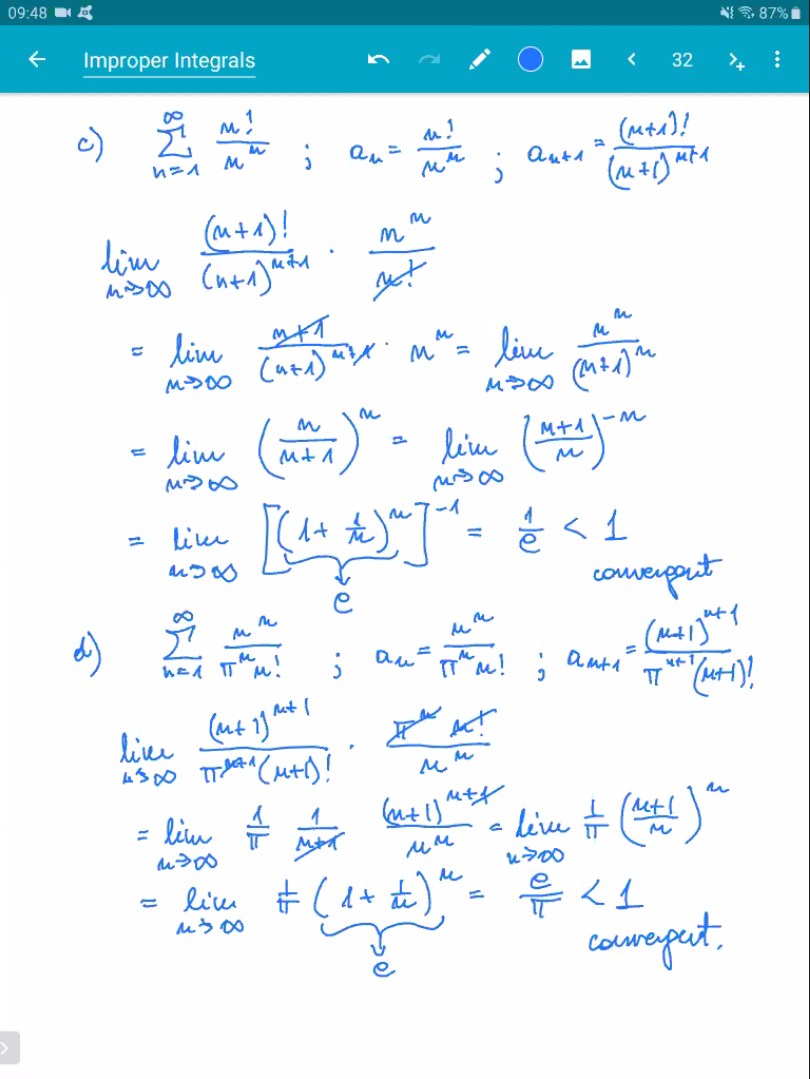 09:48 87%
Improper Integrals 32
c) ∑_{n=1}^{∞} n!/n^n ; a_n = n!/n^n ; a_{n+1} = (n+1)!/(n+1)^{n+1}
lim_{n→∞} (n+1)!/(n+1)^{n+1} · n^n/n!
= lim_{n→∞} (n+1)/(n+1)^{n+1} · n^n = lim_{n→∞} n^n/(n+1)^n
= lim_{n→∞} (n/(n+1))^n = lim_{n→∞} ((n+1)/n)^{-n}
= lim_{n→∞} [(1 + 1/n)^n]^{-1} = 1/e < 1
convergent
e
d) ∑_{n=1}^{∞} n^n/(π^n n!) ; a_n = n^n/(π^n n!) ; a_{n+1} = (n+1)^{n+1}/(π^{n+1} (n+1)!)
lim_{n→∞} (n+1)^{n+1}/(π^{n+1} (n+1)!) · (π^n n!)/n^n
= lim_{n→∞} 1/π 1/(n+1) (n+1)^{n+1}/n^n = lim_{n→∞} 1/π ((n+1)/n)^n
= lim_{n→∞} 1/π (1 + 1/n)^n = e/π < 1
convergent.
e